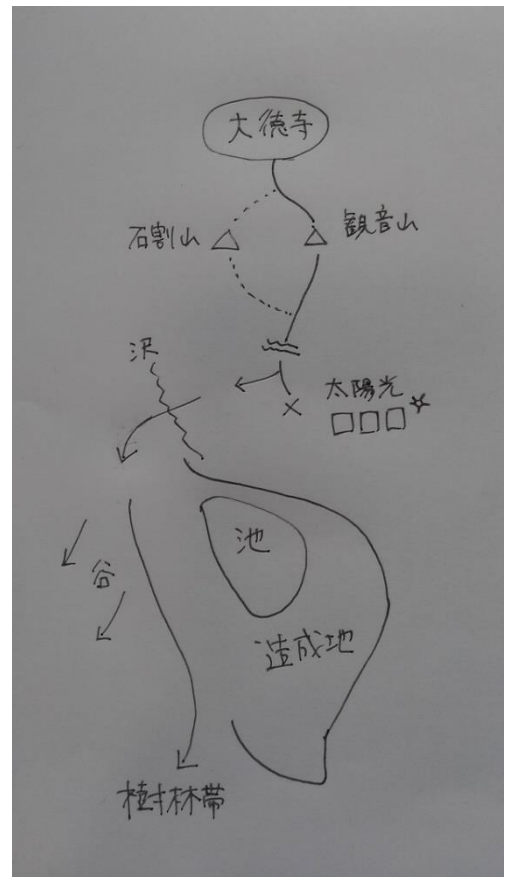 大徳寺
石割山
観音山
沢
太陽光
池
谷
造成地
樹林帯